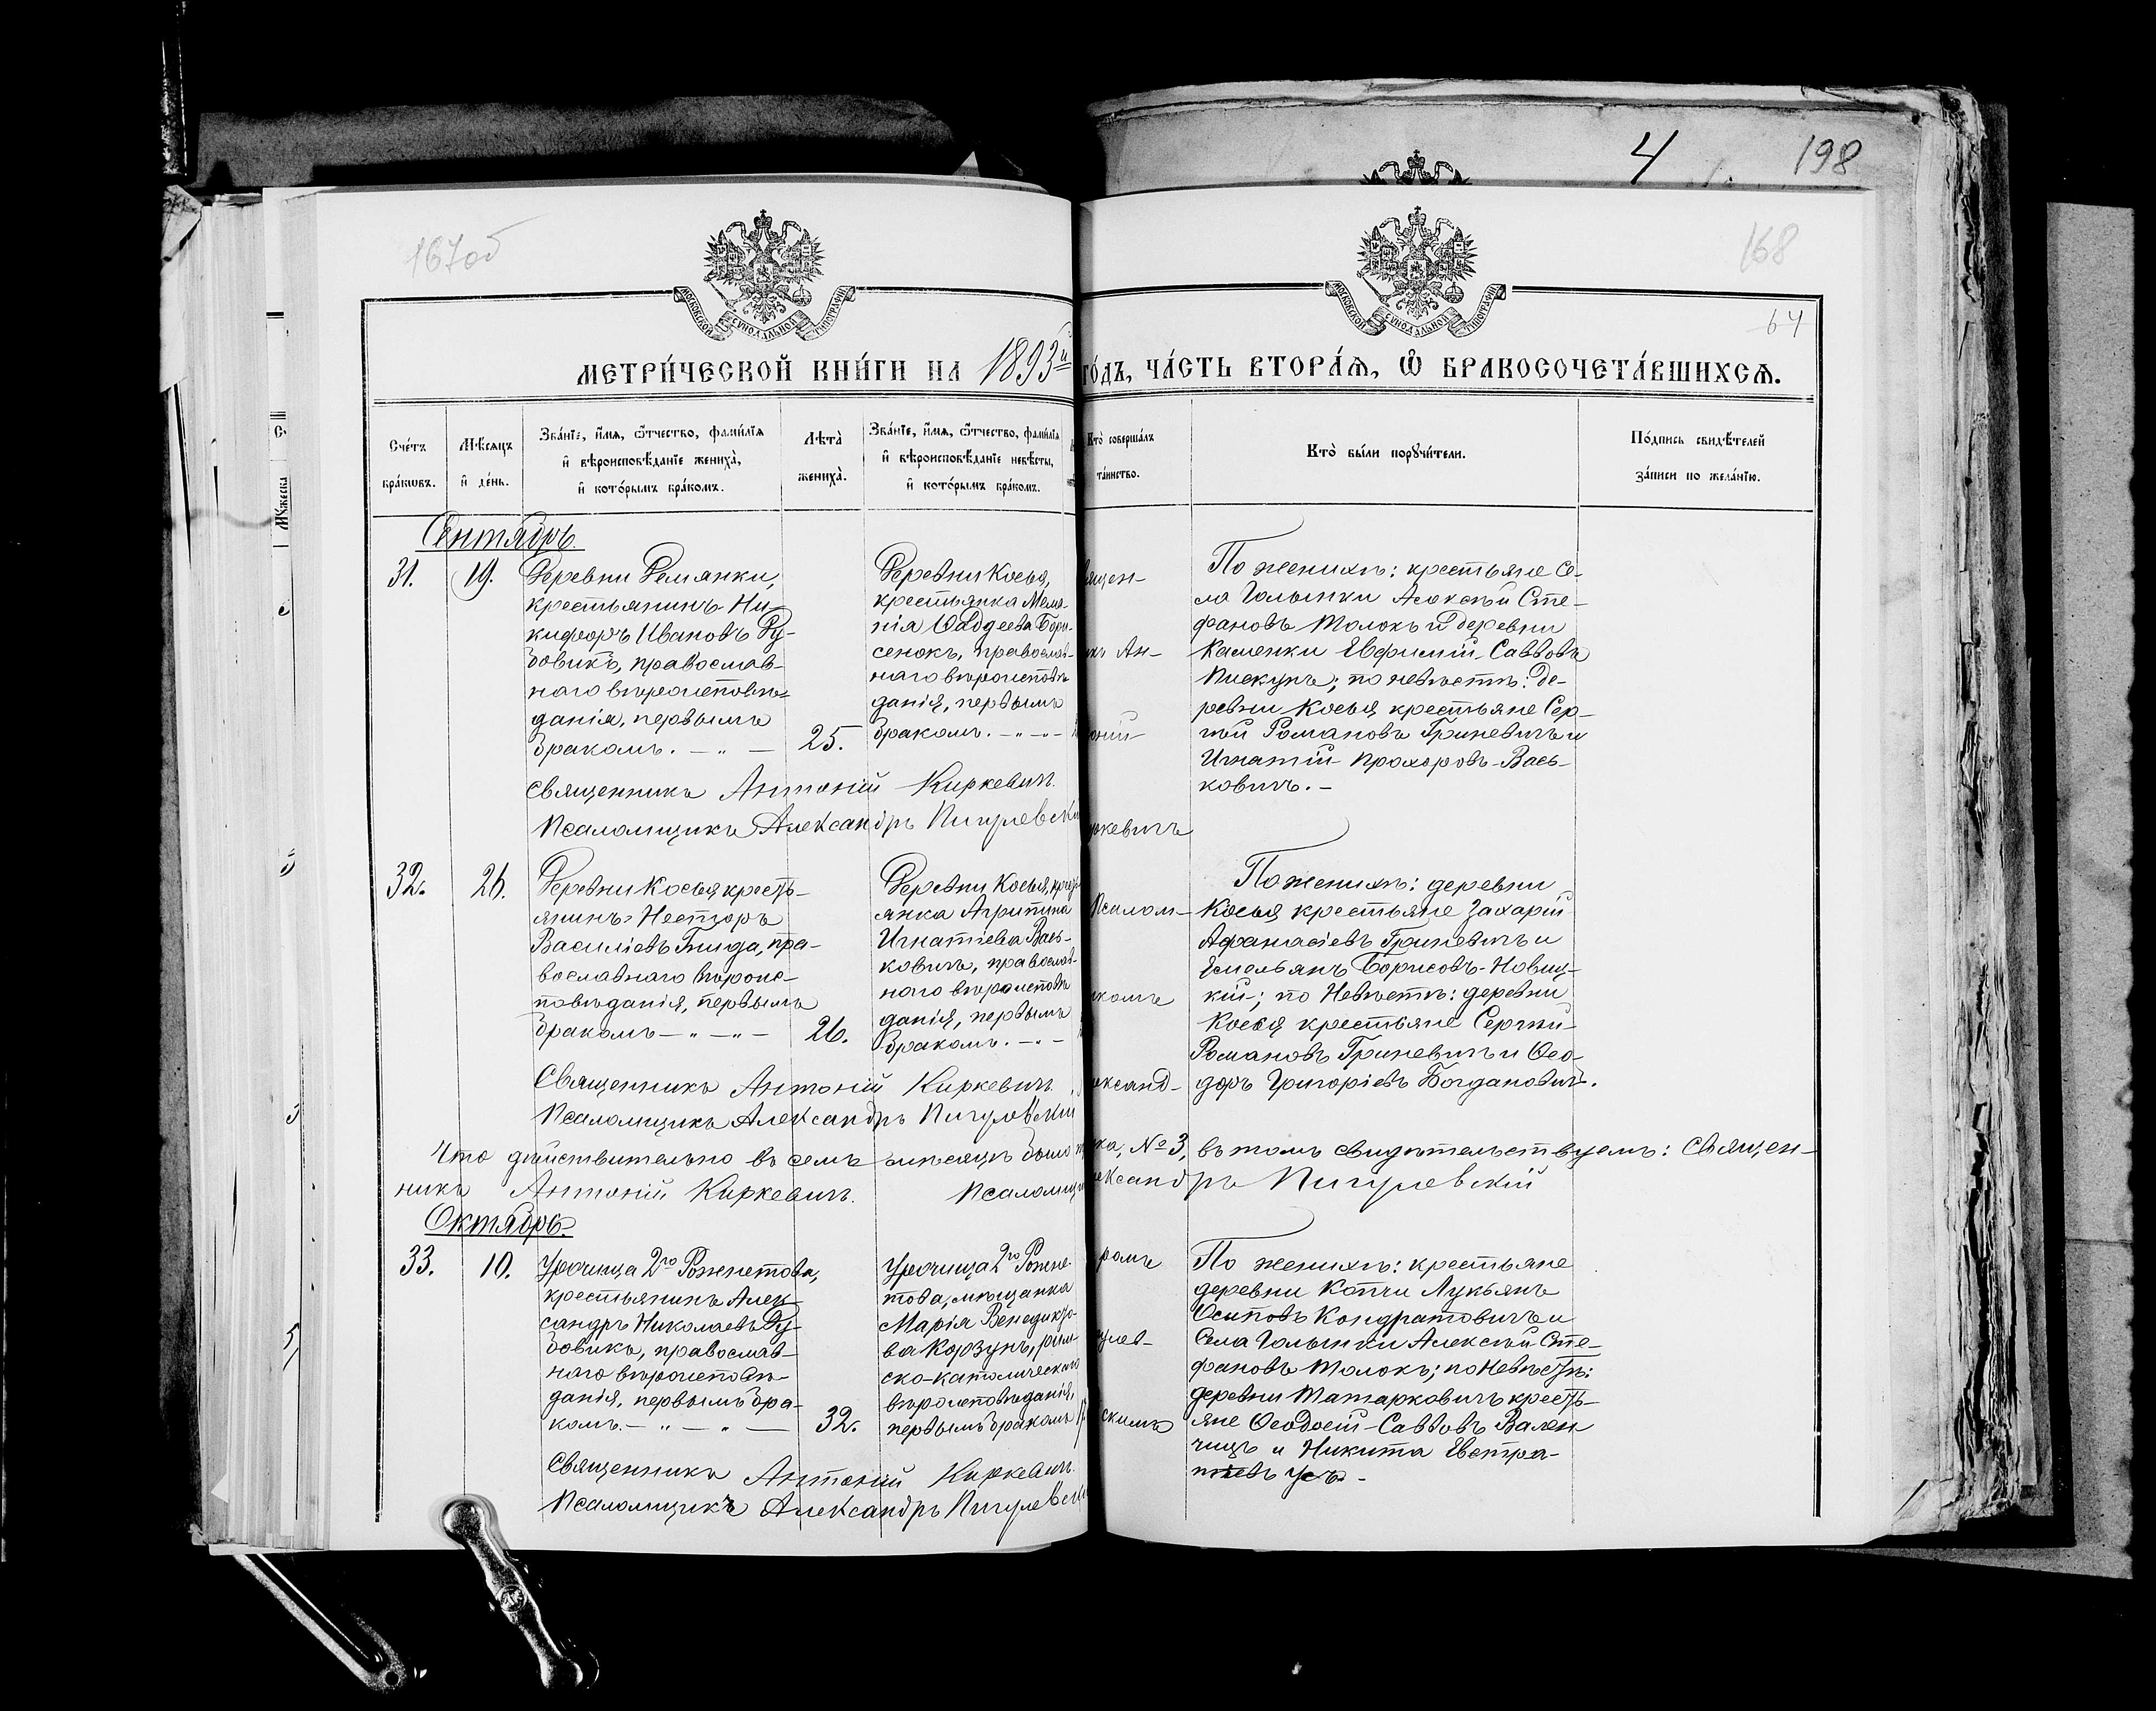 4
198
167об
168
64
МОСКОВСКОЙ СѴНОДАЛЬНОЙ ТИПОГРАФІИ
МОСКОВСКОЙ СѴНОДАЛЬНОЙ ТИПОГРАФІИ
МЕТРИ́ЧЕСКОЙ КНИ́ГИ НА 1893й го́дъ, ЧА́СТЬ ВТОРА́Ѧ, Ѡ҆ БРАКОСОЧЕТА́ВШИХСѦ.
Сче́тъ бра́кѡвъ.
Мѣ́сяцъ и҆ де́нь.
Зва́нїе, и҆́мѧ, ѻ҆́тчество, фами́лїѧ и҆ вѣроисповѣ́данїе жениха̀, и҆ кото́рымъ бра́комъ.
Лѣта̀ жениха̀.
Зва́нїе, и҆́мѧ, ѻ҆́тчество, фами́лїѧ и҆ вѣроисповѣ́данїе невѣ́сты, и҆ кото́рымъ бра́комъ.
Кто̀ соверша́лъ та́инство.
Кто̀ бы́ли порꙋчи́тели.
По́дпись свидѣ́телей за́писи по жела́нїю.
Сентябрь.
31.
19.
Деревни Демянки,
крестьянинъ Ни-
кифоръ Ивановъ Ду-
бовикъ, православ-
наго вѣроисповѣ-
данія, первымъ
бракомъ. — „ —
25.
Деревни Косыя,
крестьянка Мела-
нія Ѳаддеева Бори-
сенокъ, православ-
наго вѣроисповѣ
данія, первымъ
бракомъ. — „ —
ящен-
къ Ан-
оній
ркевичъ
По женихѣ: крестьяне се-
ла Голынки Алексѣй Сте-
фановъ Молокъ и деревни
Каменки Евфимій Саввовъ
Пискунъ; по невѣстѣ: де-
ревни Косыя крестьяне Сер-
гѣй Романовъ Гриневичъ и
Игнатій Прохоровъ Вась-
ковичъ. —
Священникъ Антоній Киркевичъ.
Псаломщикъ Александръ Пигулевскі
32.
26.
Деревни Косыя кресть-
янинъ Несторъ
Василіевъ Гнида, пра-
вославнаго вѣроис-
повѣданія, первымъ
бракомъ — „ — „ —
26.
Деревни Косыя, кресть
янка Агрипина
Игнатіева Вась-
ковичъ, православ-
наго вѣроисповѣ
данія, первымъ
бракомъ. — „ —
Псалом-
икомъ
ександ-
ромъ
гулев-
скимъ
По женихѣ: деревни
Косыя крестьяне Захарій
Афанасіевъ Гриневичъ и
Емельянъ Борисовъ Новиц-
кій; по Невѣстѣ: деревни
Косыя крестьяне Сергѣй
Романовъ Гриневичъ и Ѳео-
доръ Григоріевъ Богдановичъ.
Священникъ Антоній Киркевичъ.
Псаломщикъ Александръ Пигулевскій
Что дѣйствительно въ семъ мѣсяцѣ было ка, №3, въ томъ свидѣтельствуемъ: Священ-
никъ Антоній Киркевичъ. Псаломщи ександръ Пигулевскій
Октябрь.
33.
10.
Урочища 2го Рожнетова,
крестьянинъ Алек-
сандръ Николаевъ Ду-
бовикъ, православ-
наго вѣроисповѣ-
данія, первымъ бра-
комъ. — „ — „ —
32.
Урочища 2го Рожне-
това, мѣщанка
Марія Венедикто-
ва Корзунъ, рим
ско-католическаго
вѣроисповѣданія,
первымъ бракомъ
По женихѣ: крестьяне
деревни Копчи Лукьянъ
Осиповъ Кондратовичъ и
Села Голынки Алексѣй Сте-
фановъ Молокъ; по Невѣстѣ:
деревни Татарковичъ кресть-
яне Ѳеодосій Саввовъ Вален
чицъ и Никита Евстра-
тіевъ Усъ. —
Священникъ Антоній Киркевичъ.
Псаломщикъ Александръ Пигулевскі